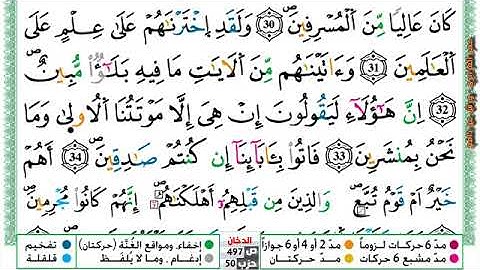 كَانَ عَالِيًا مِّنَ ٱلْمُسْرِفِينَۖ 30 وَلَقَدِ ٱخْتَرْنَٰهُمْ عَلَىٰ عِلْمٍ عَلَى
ٱلْعَٰلَمِينَۖ 31 وَءَاتَيْنَٰهُم مِّنَ ٱلْأٓيَٰتِ مَا فِيهِ بَلَٰٓؤٌا۟ مُّبِينٌۖ
32 إِنَّ هَٰٓؤُلَآءِ لَيَقُولُونَ إِنْ هِىَ إِلَّا مَوْتَتُنَا ٱلُاولىٰ وَمَا
نَحْنُ بِمُنشَرِينَۖ 33 فَاتُوا۟ بِـَٔابَآئِنَآ إِن كُنتُمْ صَٰدِقِينَۖ 34 أَهُمْ
خَيْرٌ اَمْ قَوْمُ تُبَّعٍۖ وَالذِينَ مِن قَبْلِهِمُۥٓ أَهْلَكْنَٰهُمُۥٓۖ إِنَّهُمْ كَانُوا۟ مُجْرِمِينَۖ
مدّ 6 حركات لزوماً مدّ 2 أو 4 أو 6 جوازاً الدخان إخفاء، ومواقع الغُنَّة (حركتان) تفخيم
مدّ مشبع 6 حركات مدّ حركتان ص 497 حزب 50 إدغام، وما لا يُلفَظ قلقلة